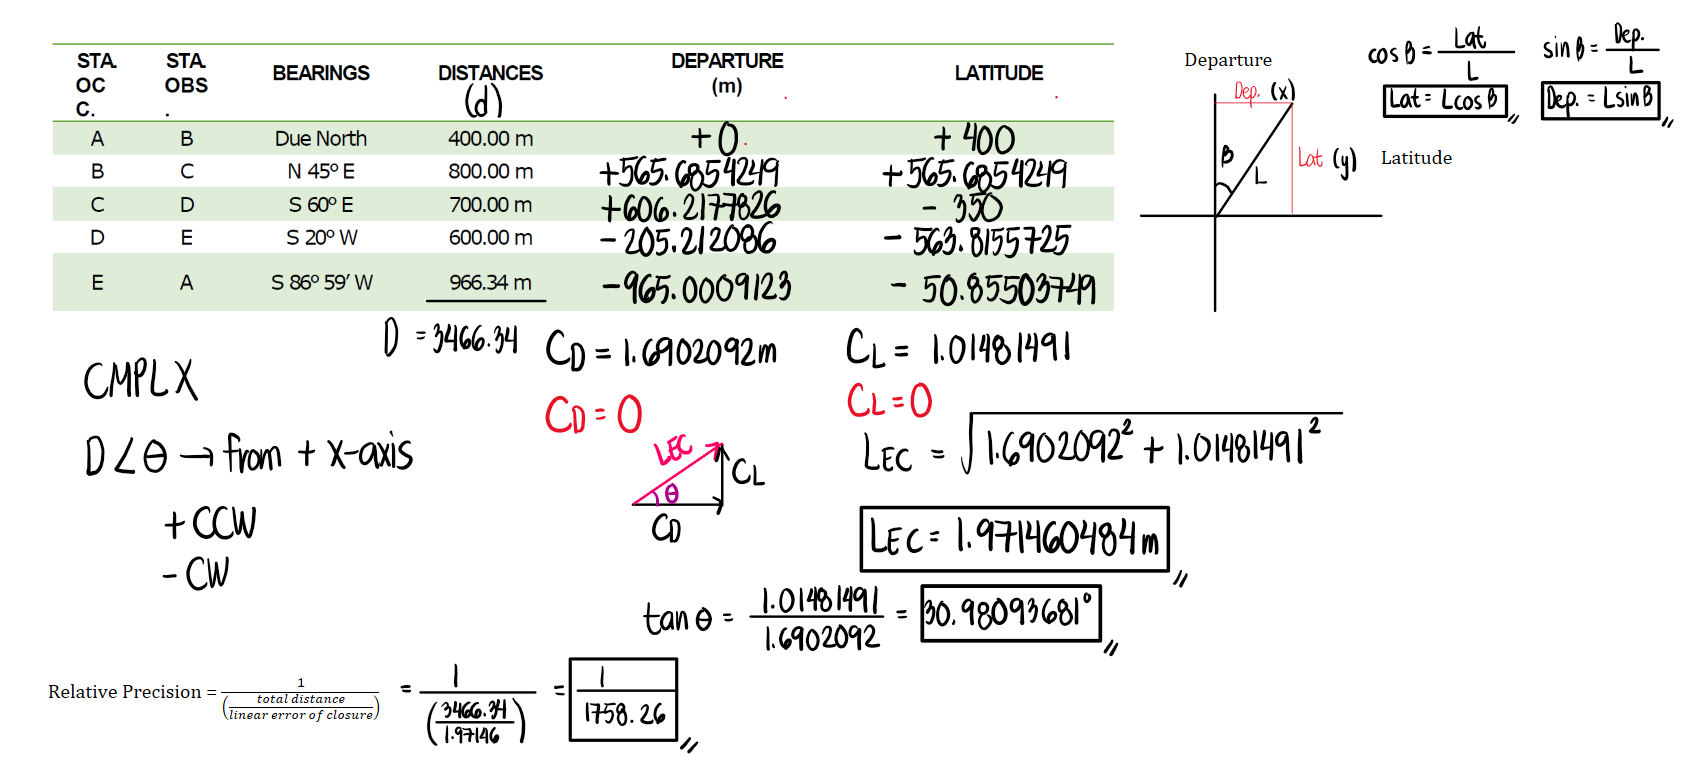 STA. OCC. STA. OBS. BEARINGS DISTANCES (d) DEPARTURE (m) LATITUDE
A B Due North 400.00 m +0 +400
B C N 45º E 800.00 m +565.6854249 +565.6854249
C D S 60º E 700.00 m +606.2177826 -350
D E S 20º W 600.00 m -205.212086 -563.8155725
E A S 86º 59' W 966.34 m -965.0009123 -50.85503749
D = 3466.34 CD = 1.6902092m CL = 1.01481491
CD = 0 CL = 0
Departure
Dep. (x)
β
L
Lat (y) Latitude
cos β = Lat / L sin β = Dep. / L
Lat = L cos β Dep. = L sin β
CMPLX
D∠θ → from + x-axis
+ CCW
- CW
LEC
θ
CL
CD
LEC = √1.6902092² + 1.01481491²
LEC = 1.971460484m
tan θ = 1.01481491 / 1.6902092 = 30.98093681°
Relative Precision = 1 / (total distance / linear error of closure) = 1 / (3466.34 / 1.97146) = 1 / 1758.26